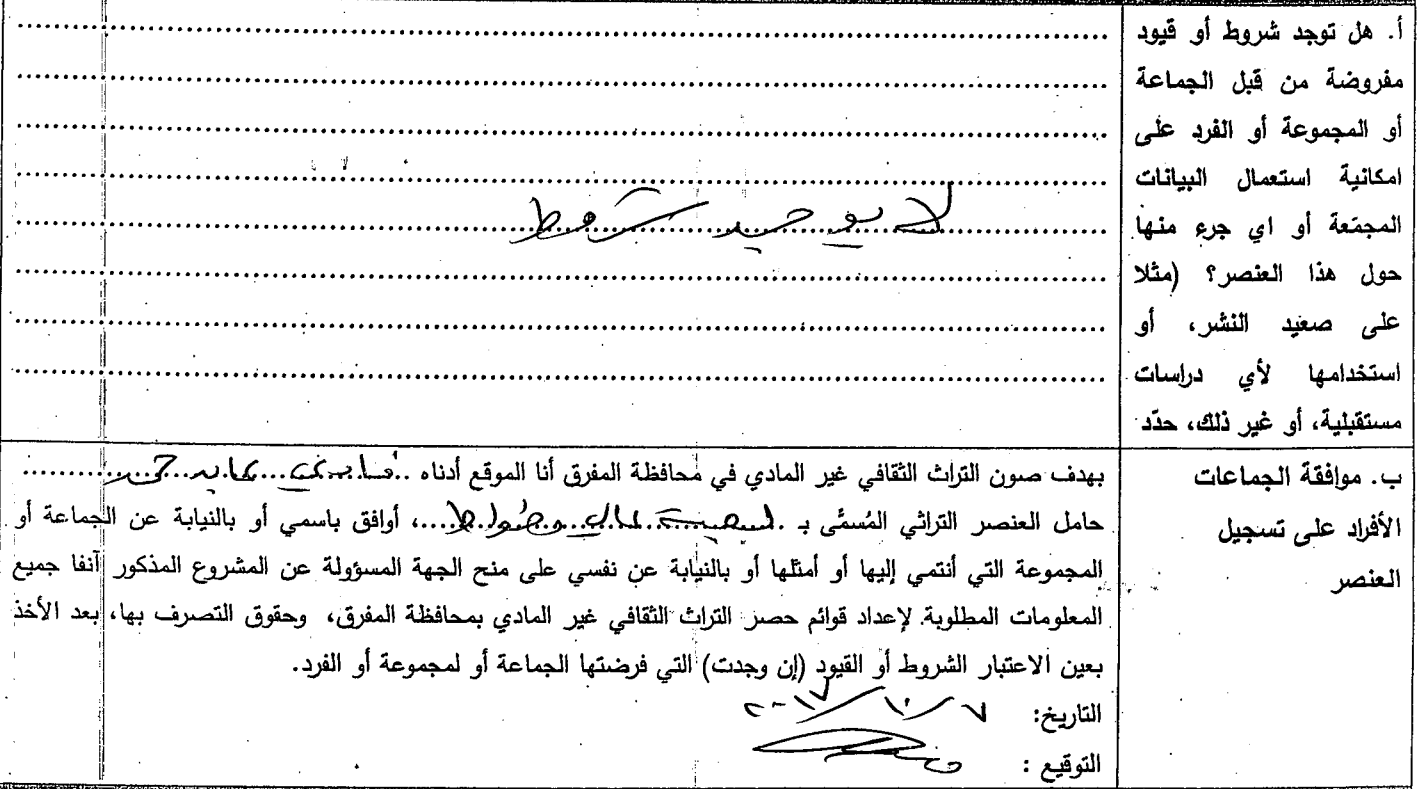 أ. هل توجد شروط أو قيود
مفروضة من قبل الجماعة
أو المجموعة أو الفرد على
امكانية استعمال البيانات
المجمّعة أو اي جرء منها
حول هذا العنصر؟ (مثلا
على صعيد النشر، أو
استخدامها لأي دراسات
مستقبلية، أو غير ذلك، حدّد
لا يوجد شروط
ب. موافقة الجماعات
الأفراد على تسجيل
العنصر
بهدف صون التراث الثقافي غير المادي في محافظة المفرق أنا الموقع أدناه
حامل العنصر التراثي المُسمَّى بـ ، أوافق باسمي أو بالنيابة عن الجماعة أو
المجموعة التي أنتمي إليها أو أمثلها أو بالنيابة عن نفسي على منح الجهة المسؤولة عن المشروع المذكور آنفا جميع
المعلومات المطلوبة لإعداد قوائم حصر التراث الثقافي غير المادي بمحافظة المفرق، وحقوق التصرف بها، بعد الأخذ
بعين الاعتبار الشروط أو القيود (إن وجدت) التي فرضتها الجماعة أو لمجموعة أو الفرد.
التاريخ: ٧/١٠/٢٠١٧
التوقيع :